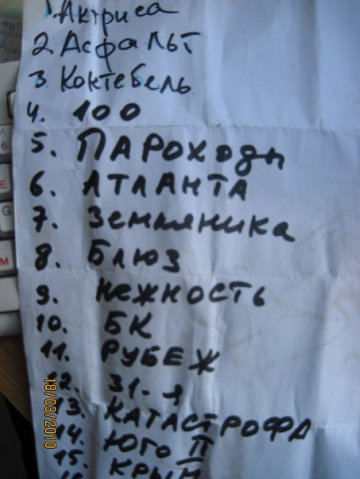 1. Актриса
2. Асфальт
3. Коктебель
4. 100
5. Пароходы
6. Атланта
7. Земляника
8. Блюз
9. Нежность
10. БК
11. Рубеж
12. 31-я
13. Катастрофа
14. Юго II
15. Крым
18/03/2010